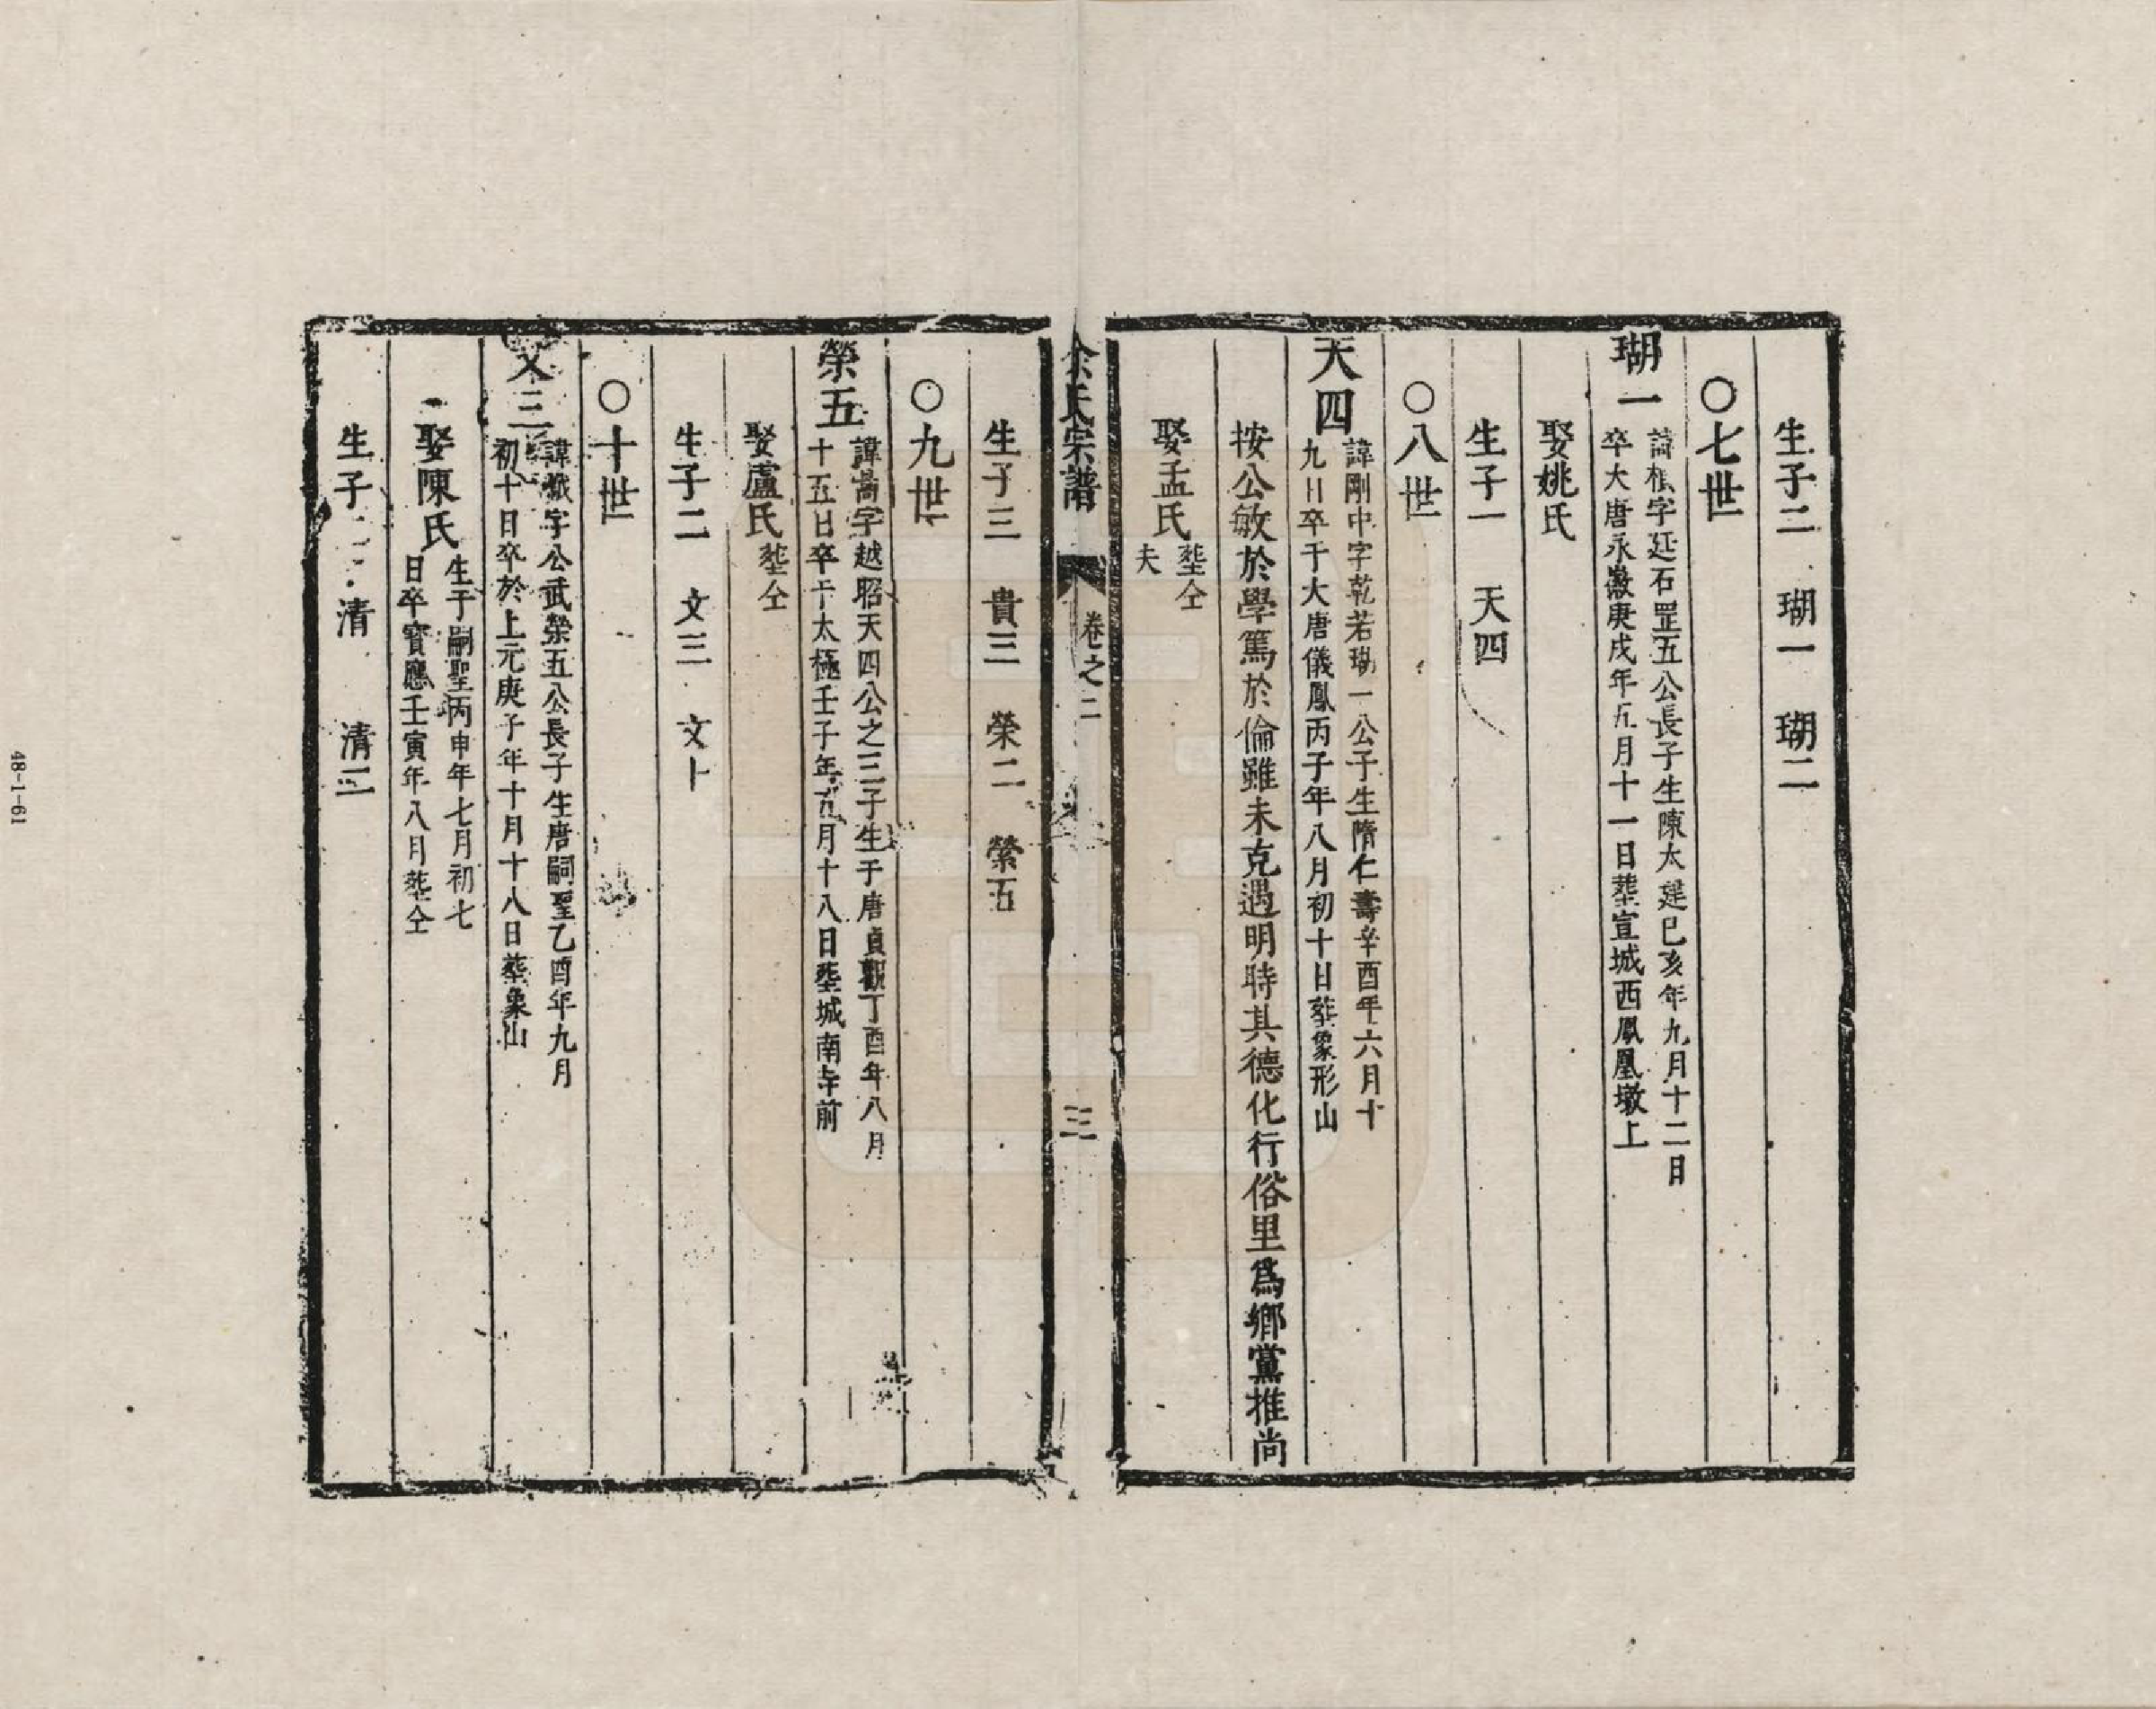 生子二 瑚一 瑚二
○七世
瑚一
諱樵字廷石罡五公長子生陳太建己亥年九月十二日
卒大唐永徽庚戌年五月十一日塟宣城西鳳凰墩上
娶姚氏
生子一 天四
○八世
天四
諱剛中字乾若瑚一公子生隋仁壽辛酉年六月十
九日卒于大唐儀鳳丙子年八月初十日塟象形山
按公敏於學篤於倫雖未克遇明時其德化行俗里爲鄉黨推尚
娶孟氏
塟仝
夫
余氏宗譜 卷之二 三
生子三 貴三 榮二 榮五
○九世
榮五
諱暠字越昭天四公之三子生于唐貞觀丁酉年八月
十五日卒于太極壬子年五月十八日塟城南寺前
娶盧氏 塟仝
生子二 文三 文十
○十世
文三
諱 字公武榮五公長子生唐嗣聖乙酉年九月
初十日卒於上元庚子年十月十八日塟象山
娶陳氏
生于嗣聖丙申年七月初七
日卒寶應壬寅年八月塟仝
生子二 清 清三
48-1-61